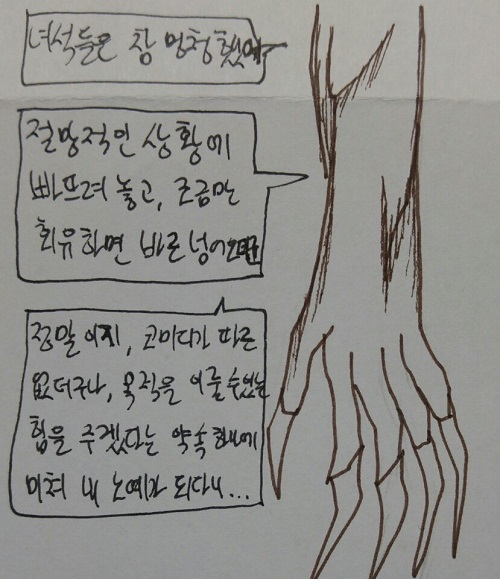 녀석들은 참 멍청했어
절망적인 상황에
빠뜨려 놓고, 조금만
회유하면 바로 넘어오더군
정말이지, 코미디가 따로
없더구나, 목적을 이룰 수 있는
힘을 주겠다는 약속 하나에
미쳐 내 노예가 되다니...